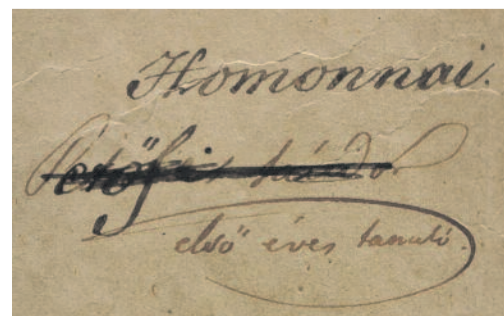 Homonnai.
Petőfi Sándor
első éves tanuló.